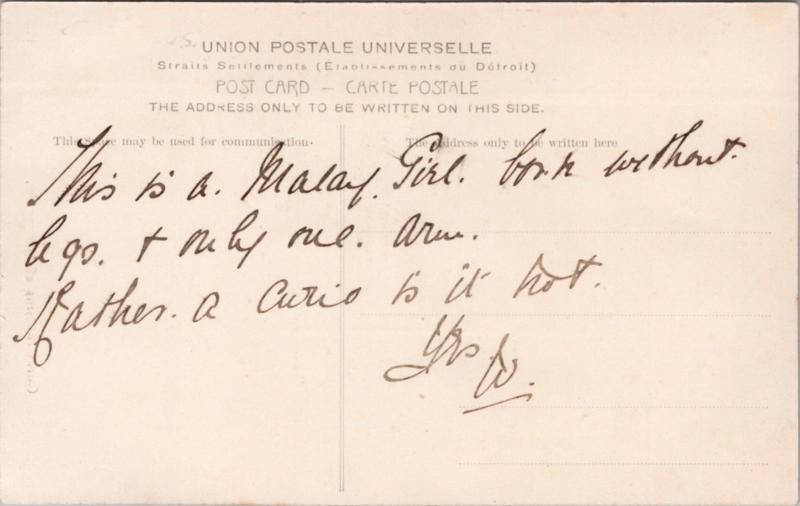 UNION POSTALE UNIVERSELLE
Straits Settlements (Établissements du Détroit)
POST CARD — CARTE POSTALE
THE ADDRESS ONLY TO BE WRITTEN ON THIS SIDE.
This Space may be used for communication. The Address only to be written here
This is a. Malay. Girl. born without.
legs. + only one. arm.
Rather. a curio is it not.
Yrs W.